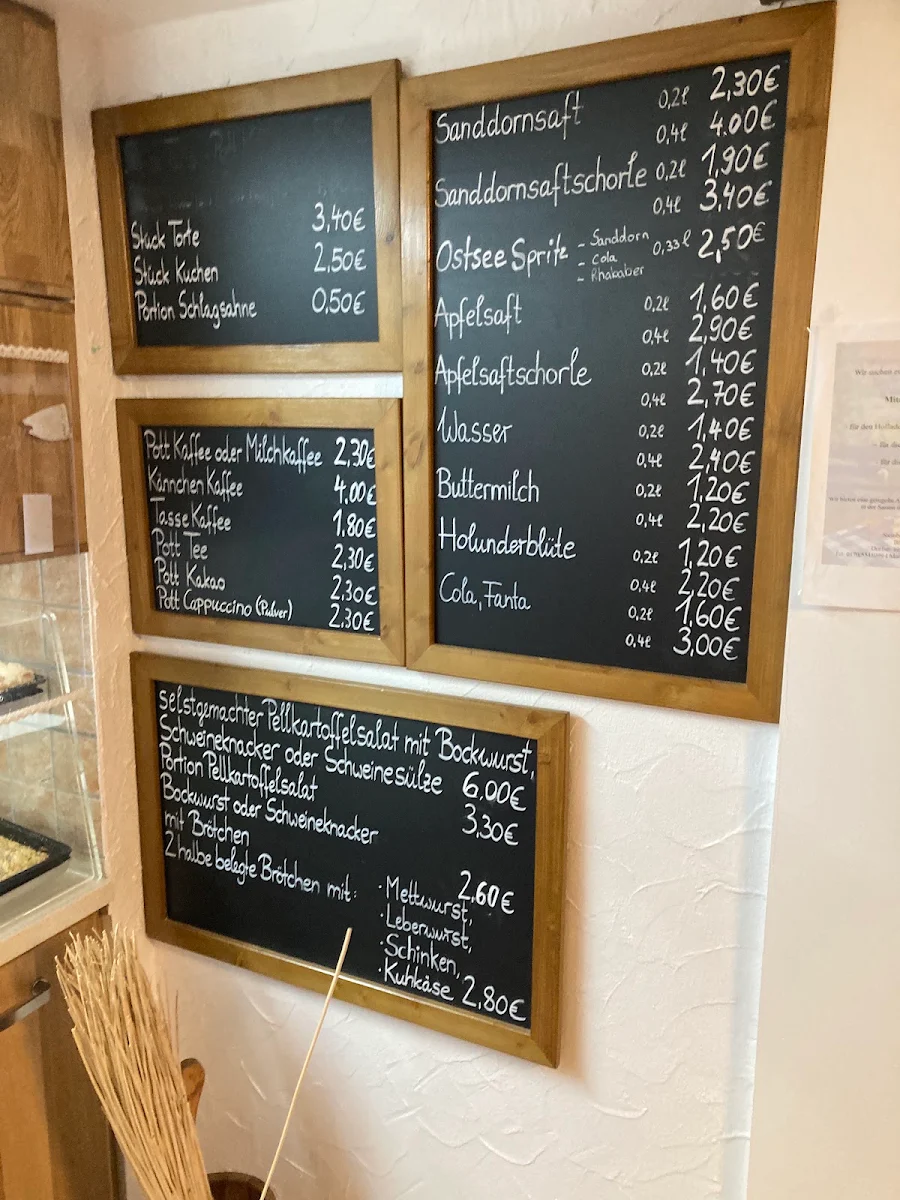 Stück Torte 3,40€
Stück Kuchen 2,50€
Portion Schlagsahne 0,50€
Pott Kaffee oder Milchkaffee 2,30€
Kännchen Kaffee 4,00€
Tasse Kaffee 1,80€
Pott Tee 2,30€
Pott Kakao 2,30€
Pott Cappuccino (Pulver) 2,30€
selstgemachter Pellkartoffelsalat mit Bockwurst,
Schweineknacker oder Schweinesülze 6,00€
Portion Pellkartoffelsalat 3,30€
Bockwurst oder Schweineknacker
mit Brötchen 2,60€
2 halbe belegte Brötchen mit: · Mettwurst,
· Leberwurst,
· Schinken,
· Kuhkäse 2,80€
Sanddornsaft 0,2l 2,30€
0,4l 4,00€
Sanddornsaftschorle 0,2l 1,90€
0,4l 3,40€
Ostsee Spritz - Sanddorn 0,33l 2,50€
- Cola
- Rhababer
Apfelsaft 0,2l 1,60€
0,4l 2,90€
Apfelsaftschorle 0,2l 1,40€
0,4l 2,70€
Wasser 0,2l 1,40€
0,4l 2,40€
Buttermilch 0,2l 1,20€
0,4l 2,20€
Holunderblüte 0,2l 1,20€
0,4l 2,20€
Cola, Fanta 0,2l 1,60€
0,4l 3,00€
Wir suchen
für den Hofladen